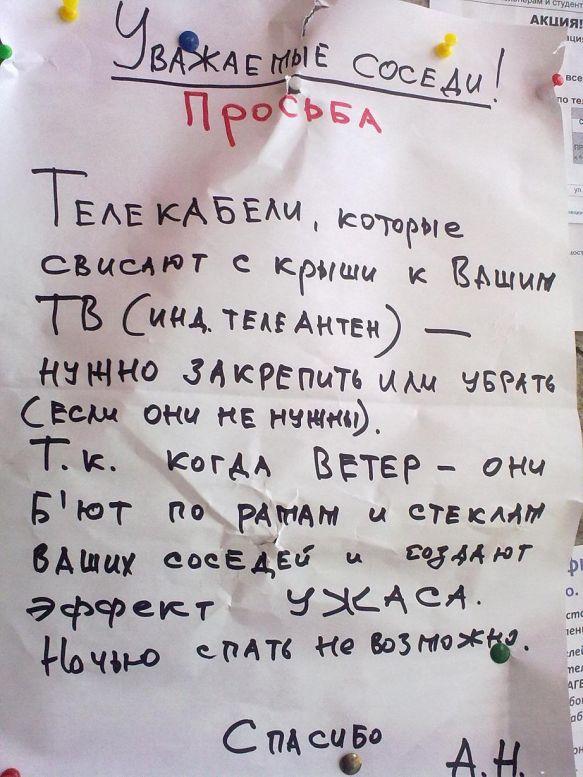 Уважаемые соседи!
Просьба
Телекабели, которые
свисают с крыши к Вашим
ТВ (инд. телеантен) —
нужно закрепить или убрать
(если они не нужны).
Т.к. когда ВЕТЕР - они
б'ют по рамам и стеклам
ваших соседей и создают
эффект УЖАСА.
Ночью спать не возможно.
Спасибо
А.Н.
АКЦИЯ!